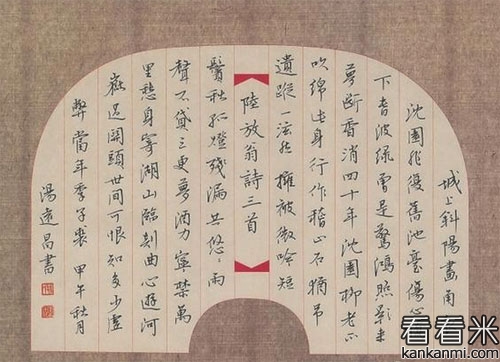 城上斜陽畫角
沈園非復舊池臺傷心
下春波綠曾是驚鴻照影來
夢斷香消四十年沈園柳老不
吹綿此身行作稽山土猶弔
遺蹤一泫然擁被微吟短
陸放翁詩三首
鬢秋孤燈殘漏共悠〻雨
聲不貸三更夢酒力寧禁萬
里愁身寄湖山臨剡曲心遊河
過關頭世間可恨知多少虛
弊當年季子裘 甲午秋月
湯遠昌書
看看米
kankanmi.com